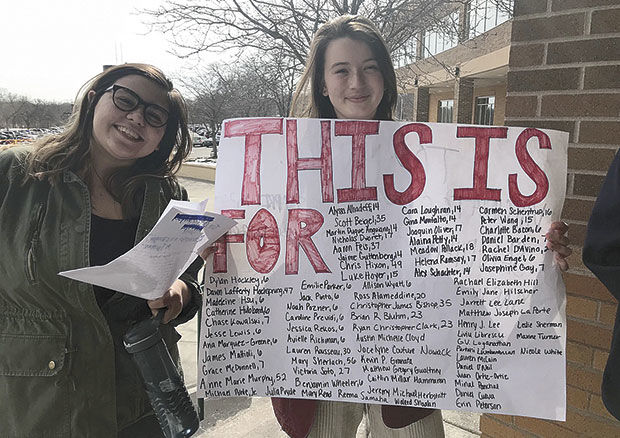 THIS IS
FOR
Alyssa Alhadeff, 14
Scott Beigel, 35
Martin Duque Anguiano, 14
Nicholas Dworet, 17
Aaron Feis, 37
Jaime Guttenberg, 14
Chris Hixon, 49
Luke Hoyer, 15
Cara Loughran, 14
Gina Montalto, 14
Joaquin Oliver, 17
Alaina Petty, 14
Meadow Pollack, 18
Helena Ramsay, 17
Alex Schachter, 14
Carmen Schentrup, 16
Peter Wang, 15
Charlotte Bacon, 6
Daniel Barden, 7
Rachel D'Avino,
Olivia Engel, 6
Josephine Gay, 7
Dylan Hockley, 6
Dawn Lafferty Hochsprung, 47
Madeleine Hsu, 6
Catherine Hubbard, 6
Chase Kowalski, 7
Jesse Lewis, 6
Ana Marquez-Greene, 6
James Mattioli, 6
Grace McDonnell, 7
Anne Marie Murphy, 52
Emilie Parker, 6
Jack Pinto, 6
Noah Pozner, 6
Caroline Previdi, 6
Jessica Rekos, 6
Avielle Richman, 6
Lauren Rousseau, 30
Mary Sherlach, 56
Victoria Soto, 27
Benjamin Wheeler, 6
Allison Wyatt, 6
Ross Alameddine, 20
Christopher James Bishop, 35
Brian R. Bluhm, 23
Ryan Christopher Clark, 23
Austin Michelle Cloyd
Jocelyne Couture Nowack
Kevin P. Granata
Matthew Gregory Gwaltney
Caitlin Millar Hammaren
Jeremy Michael Herbstritt
Rachael Elizabeth Hill
Emily Jane Hilscher
Jarrett Lee Lane
Matthew Joseph La Porte
Henry J. Lee
Liviu Librescu
G.V. Loganathan
Partahi Lumbantoruan
Lauren McCain
Daniel O'Neil
Juan Ortiz-Ortiz
Minal Panchal
Daniel Cueva
Erin Peterson
Leslie Sherman
Maxine Turner
Nicole White
Michael Pohle, Jr.
Julia Pryde
Mary Read
Reema Samaha
Waleed Shaalan